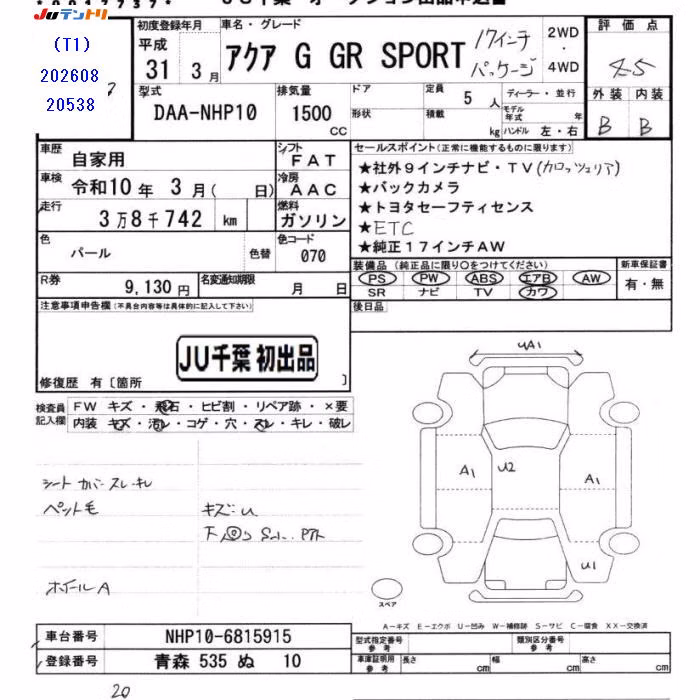 JUテントリ
(T1)
202608
20538
初度登録年月
平成
31 3月
車名・グレード
アクア G GR SPORT
17インチ
パッケージ
2WD
・
4WD
評価点
4-5
外装 内装
B B
型式
DAA-NHP10
排気量
1500
CC
ドア
形状
定員
5 人
積載
kg
ディーラー・並行
モデル年式 年
ハンドル 左・右
車歴
自家用
シフト
FAT
車検
令和10年 3月( 日)
冷房
AAC
走行
3万8千742 km
燃料
ガソリン
色
パール
色替
色コード
070
R券
9,130円
名変通知期限
月 日
セールスポイント(正常に機能するものに限ります)
★社外9インチナビ・TV(カロッツェリア)
★バックカメラ
★トヨタセーフティセンス
★ETC
★純正17インチAW
装備品(純正品に限り○をつけてください)
PS PW ABS エアB AW
SR ナビ TV カワ
新車保証書
有・無
後日品
注意事項申告欄(不具合内容等は具体的に記入して下さい)
JU千葉 初出品
修復歴 有〔箇所 〕
検査員
記入欄
FW キズ・飛石・ヒビ割・リペア跡・×要
内装 キズ・汚レ・コゲ・穴・スレ・キレ・破レ
シートカバースレ・キレ
ペット毛
キズ:U
ホイールA
UA1
A1
U2
A1
U1
スペア
A-キズ E-エクボ U-凹み W-補修跡 S-サビ C-腐食 XX-交換済
車台番号
NHP10-6815915
登録番号
青森 535 ぬ 10
型式指定番号
参考
類別区分番号
参考
車庫証明用
参考
長さ cm
幅 cm
高さ cm
20